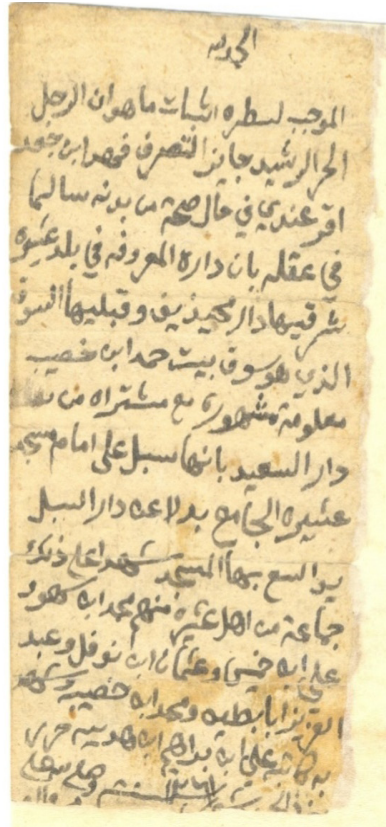 الحمد لله
الموجب لسطره اثبات ما هو ان الرجل
الحر الرشيد جايز التصرف فهد ابن جعد
اقر عندي في حال صحة من بدنه سالما
في عقله بان داره المعروفه في بلد عشيره
شرقيها دار محمد وقبليها السوق
الذي هو سوق بيت حمد ابن خصيب
معلومة مشهورة مع مشتراه من
دار السعيد بانها سبل على امام مسجد
عشيره الجامع بدلا عن دار السبل
يوم اتسع بها المسجد شهد على ذلك
جماعة من اهل عشيره منهم محمد ابن سعود
علي ابن خميس وعثمان ابن نوفل وعبد
العزيز ابا بطين ومحمد ابن خصيب وشهد
به كاتبه علي ابن ابراهيم ابن